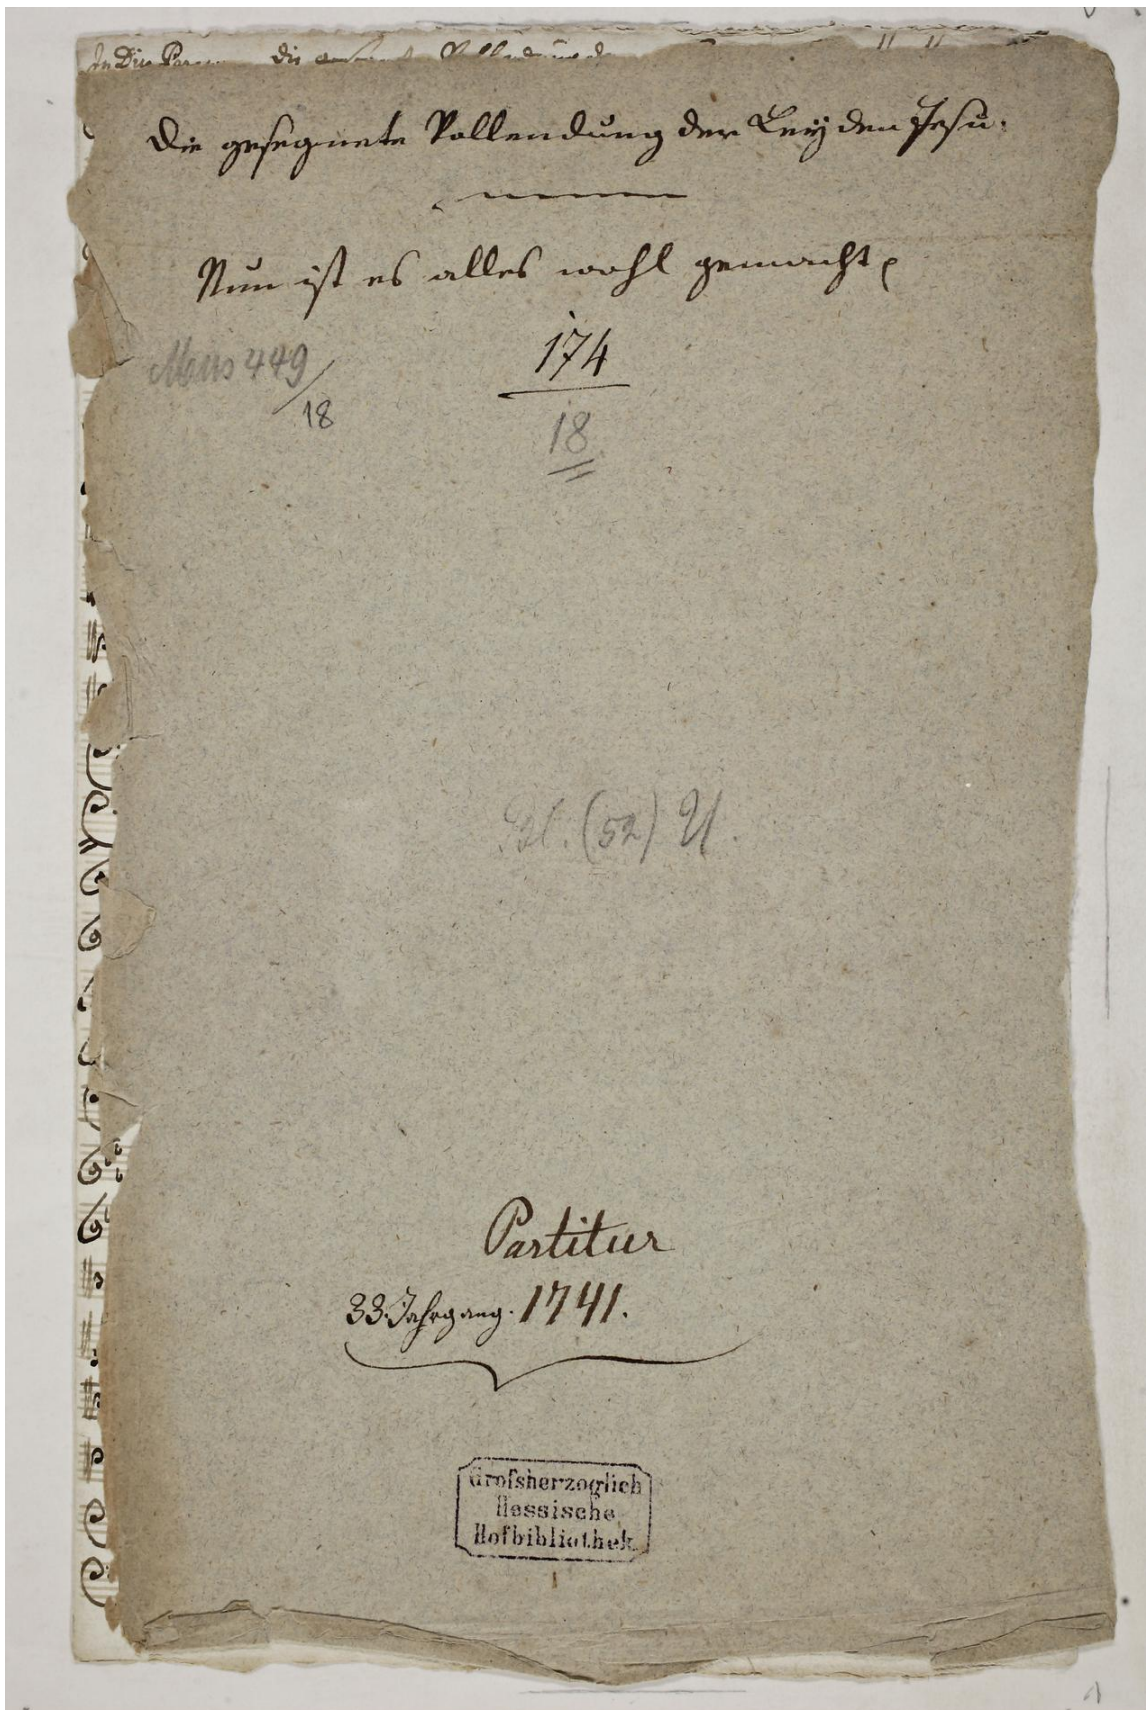 Die gesegnete Vollendung der Leyden Jesu.
Nun ist es alles wohl gemacht
Mus 449/
18
174
18
(52) U.
Partitur
33. Jahrgang. 1741.
Großherzoglich
Hessische
Hofbibliothek.